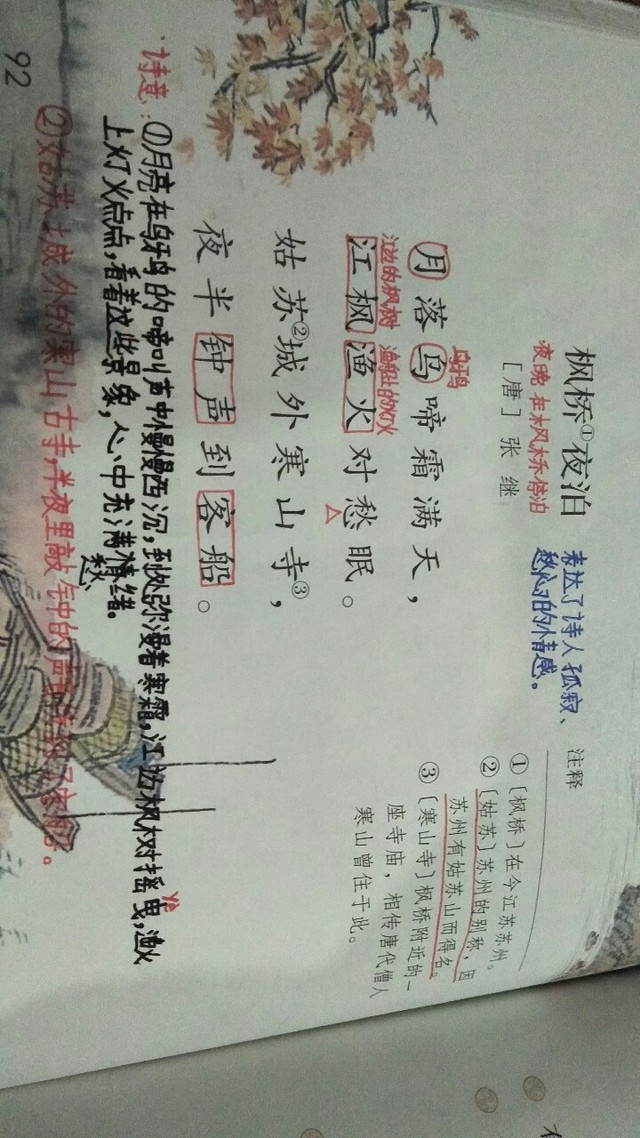 枫桥①夜泊
夜晚在枫桥停泊
[唐]张继
表达了诗人孤寂、
愁心的情感。
乌鸦
月落乌啼霜满天，
江边的枫树 渔船上的灯火
江枫渔火对愁眠。
姑苏②城外寒山寺③，
夜半钟声到客船。
注释
①〔枫桥〕在今江苏苏州。
②〔姑苏〕苏州的别称，因
苏州有姑苏山而得名。
③〔寒山寺〕枫桥附近的一
座寺庙，相传唐代僧人
寒山曾住于此。
诗意:①月亮在乌鸦的啼叫声中慢慢西沉，到处弥漫着寒霜，江边枫树摇曳，渔火
yè
上灯火点点，看着这些景象，人心中充满情绪。
愁
②姑苏城外的寒山古寺，半夜里敲钟的声音
92